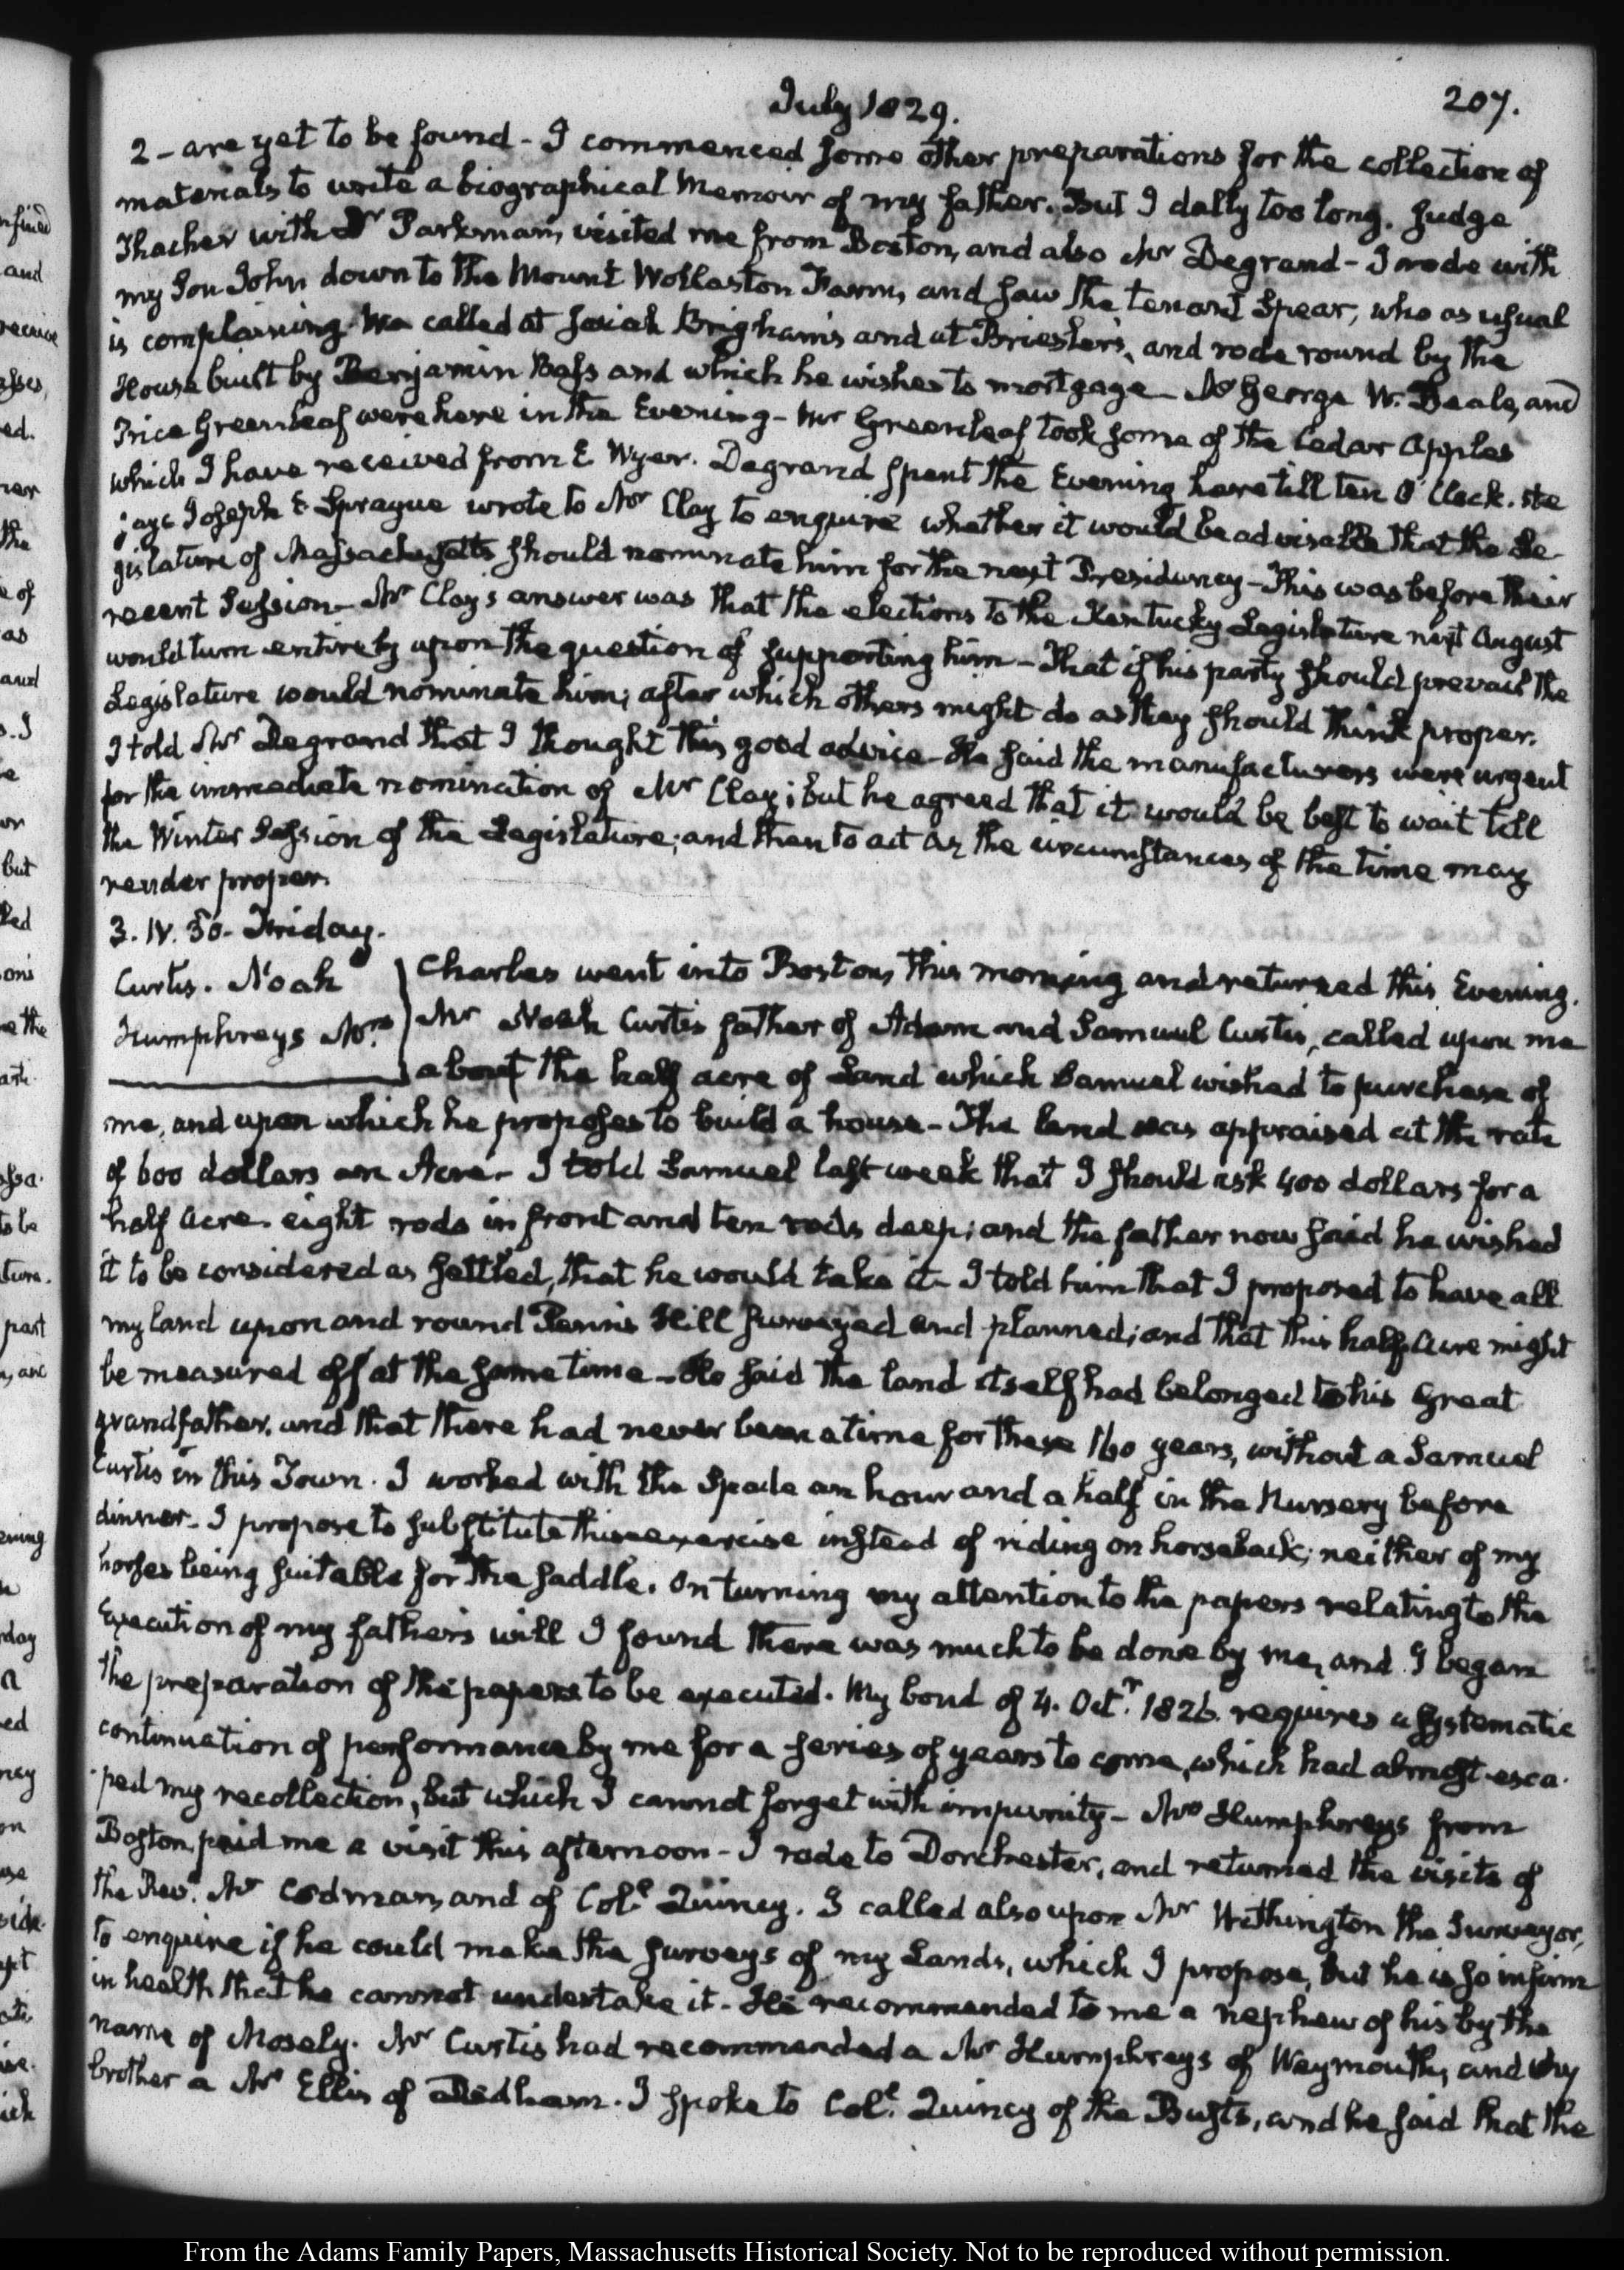 July 1829.
207.
2 - are yet to be found - I commenced some other preparations for the collection of
materials to write a biographical Memoir of my father. But I dally too long. Judge
Thacher with Dr Parkman, visited me from Boston, and also Mr Degrand - I rode with
my Son John down to the Mount Wollaston Farm, and saw the tenant Spear, who as usual
is complaining. We called at Josiah Brigham's and at Briesler's, and rode round by the
House built by Benjamin Bass and which he wishes to mortgage - Mr George W. Beale, and
Price Greenleaf were here in the Evening - Mr Greenleaf took some of the Cedar Apples
which I have received from E Wyer. Degrand spent the Evening here till ten O'Clock. He
says Joseph E Sprague wrote to Mr Clay to enquire whether it would be advisable that the Le-
gislature of Massachusetts should nominate him for the next Presidency - This was before their
recent Session - Mr Clay's answer was that the elections to the Kentucky Legislature next August
would turn entirely upon the question of supporting him - That if his party should prevail the
Legislature would nominate him; after which others might do as they should think proper.
I told Mr Degrand that I thought this good advice - He said the manufacturers were urgent
for the immediate nomination of Mr Clay; but he agreed that it would be best to wait till
the Winter Session of the Legislature; and then to act as the circumstances of the time may
render proper.
3. IV. 30. Friday.
Curtis. Noah
Humphreys Mrs
Charles went into Boston, this morning and returned this Evening.
Mr Noah Curtis father of Adam and Samuel Curtis, called upon me
about the half acre of Land which Samuel wished to purchase of
me, and upon which he proposes to build a house - The land was appraised at the rate
of 600 dollars an Acre - I told Samuel last week that I should ask 400 dollars for a
half Acre. eight rods in front and ten rods deep; and the father now said he wished
it to be considered as settled, that he would take it - I told him that I proposed to have all
my land upon and round Penn's Hill surveyed and planned; and that this half Acre might
be measured off at the same time - He said the land itself had belonged to his Great
grandfather, and that there had never been a time for these 160 years, without a Samuel
Curtis in this Town. I worked with the Spade an hour and a half in the Nursery before
dinner - I propose to substitute this exercise instead of riding on horseback; neither of my
horses being suitable for the saddle. On turning my attention to the papers relating to the
Execution of my father's will I found there was much to be done by me, and I began
the preparation of the papers to be executed. My bond of 4. Octr 1826. requires a systematic
continuation of performance by me for a series of years to come, which had almost esca-
ped my recollection, but which I cannot forget with impunity - Mrs Humphreys from
Boston, paid me a visit this afternoon - I rode to Dorchester, and returned the visits of
the Revd Mr Codman, and of Coll Quincy. I called also upon Mr Withington the Surveyor,
to enquire if he could make the surveys of my Lands, which I propose, but he is so infirm
in health that he cannot undertake it - He recommended to me a nephew of his by the
name of Mosely. Mr Curtis had recommended a Mr Humphreys of Weymouth, and my
brother a Mr Ellis of Dedham. I spoke to Coll Quincy of the Busts, and he said that the
From the Adams Family Papers, Massachusetts Historical Society. Not to be reproduced without permission.